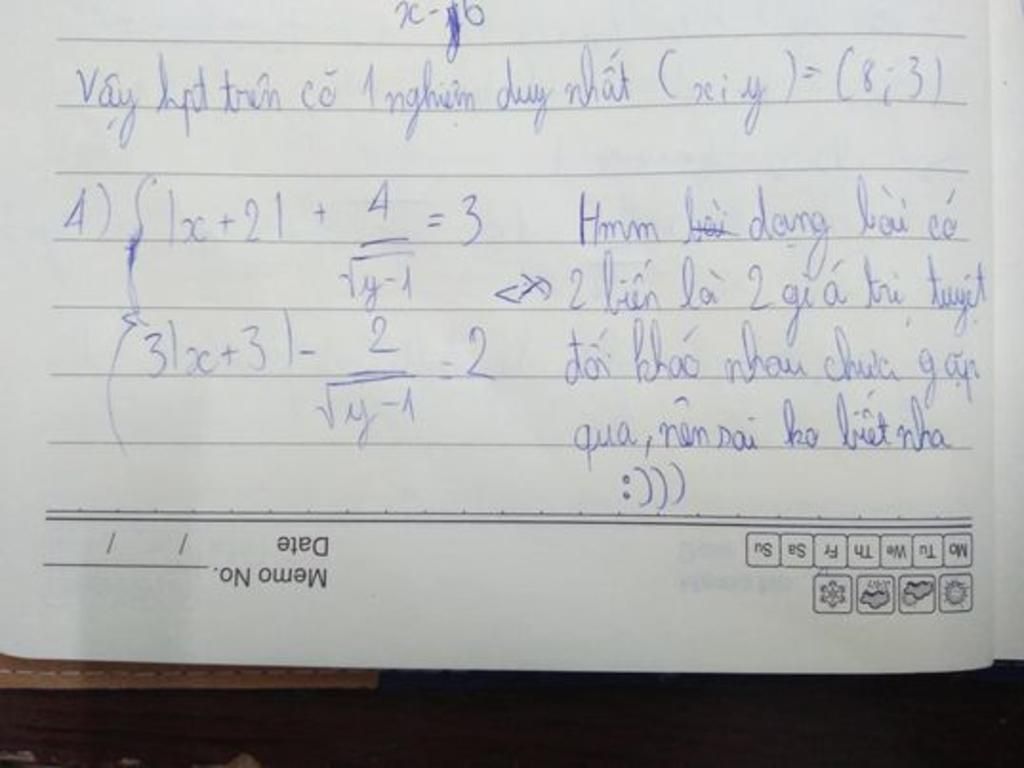 x-y6
Vậy hpt trên có 1 nghiệm duy nhất (x;y)=(8;3)
4) { |x+2| + 4/√y-1 = 3
3|x+3| - 2/√y-1 = 2
<=>
Hmm bài dạng bài có
2 biến là 2 giá trị tuyệt
đối khác nhau chưa gặp
qua, nên sai ko biết nha
:)))
Memo No.
Date / /
Mo Tu We Th Fr Sa Su